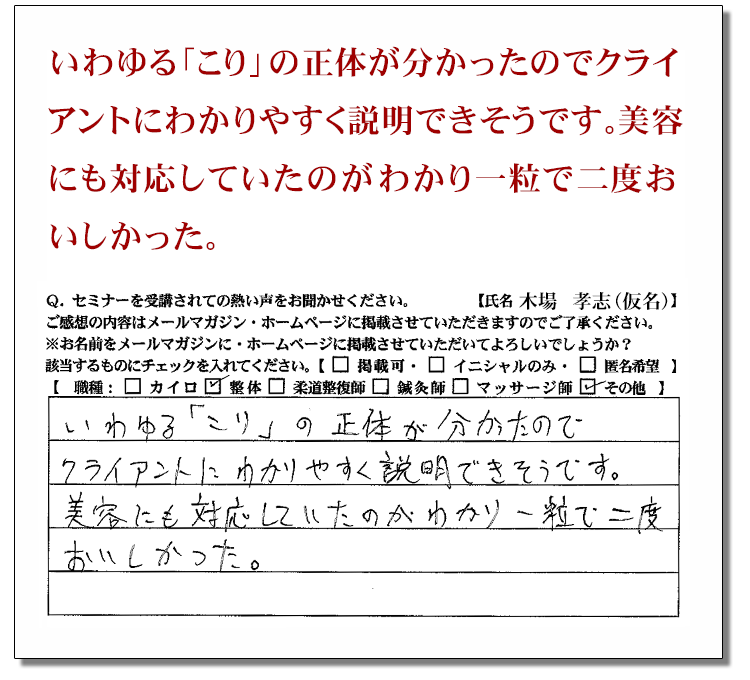 いわゆる「こり」の正体が分かったのでクライ
アントにわかりやすく説明できそうです。美容
にも対応していたのがわかり一粒で二度お
いしかった。
Q. セミナーを受講されての熱い声をお聞かせください。 【氏名 木場 孝志(仮名)】
ご感想の内容はメールマガジン・ホームページに掲載させていただきますのでご了承ください。
※お名前をメールマガジンに・ホームページに掲載させていただいてよろしいでしょうか?
該当するものにチェックを入れてください。【 □ 掲載可・ □ イニシャルのみ・ □ 匿名希望 】
【 職種: □ カイロ ☑ 整体 □ 柔道整復師 □ 鍼灸師 □ マッサージ師 ☑ その他 】
いわゆる「こり」の正体が分かったので
クライアントにわかりやすく説明できそうです。
美容にも対応していたのがわかり一粒で二度
おいしかった。